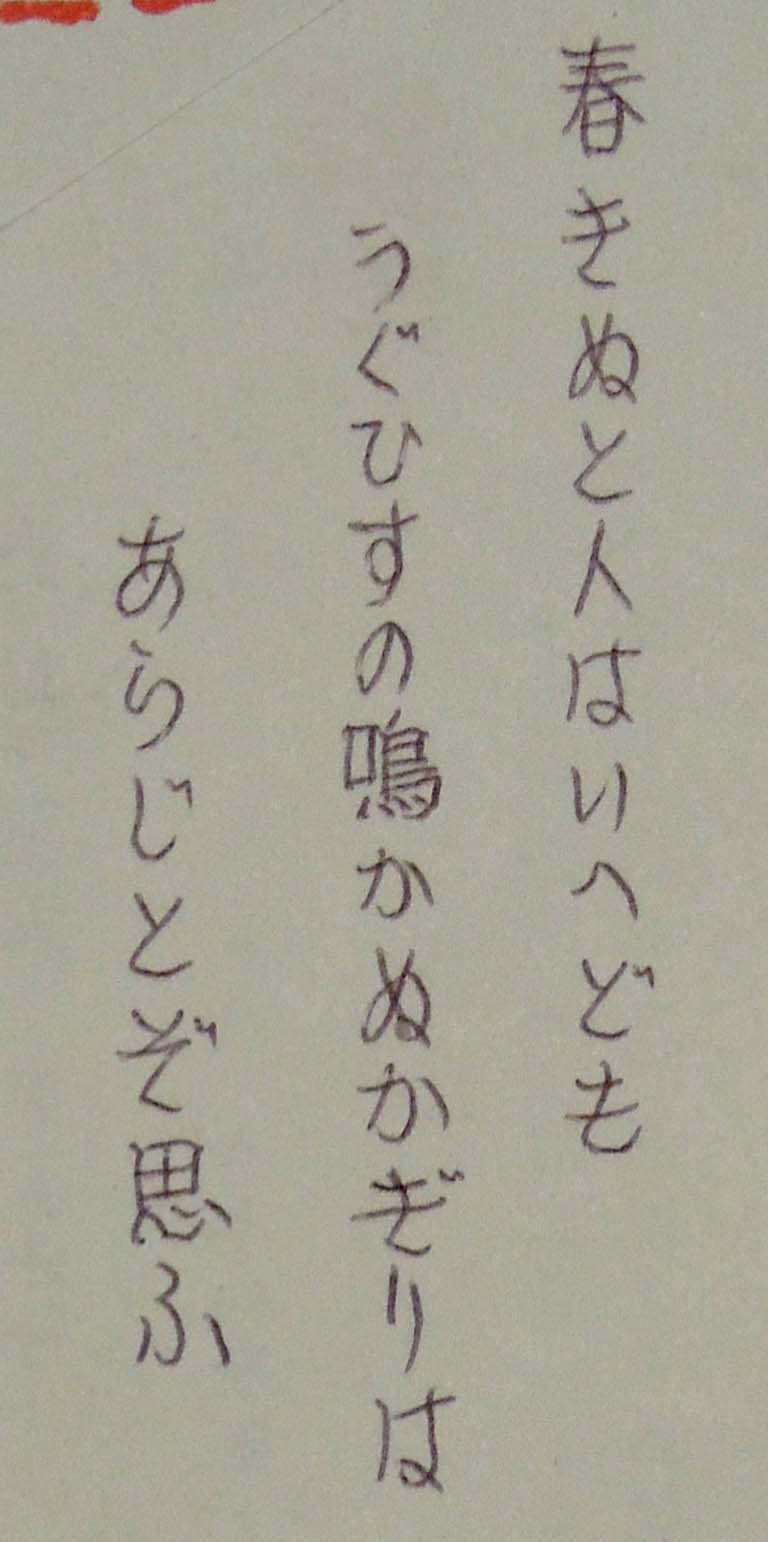 春きぬと人はいへども
うぐひすの鳴かぬかぎりは
あらじとぞ思ふ